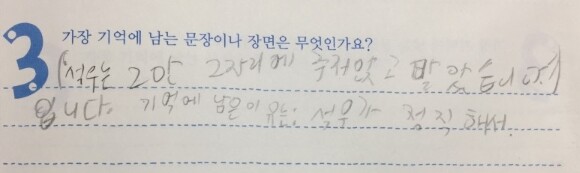 3 가장 기억에 남는 문장이나 장면은 무엇인가요?
(석우는 그만 그자리에 주저앉고 말았습니다.)
입니다. 기억에 남은 이유는: 석우가 정직해서.